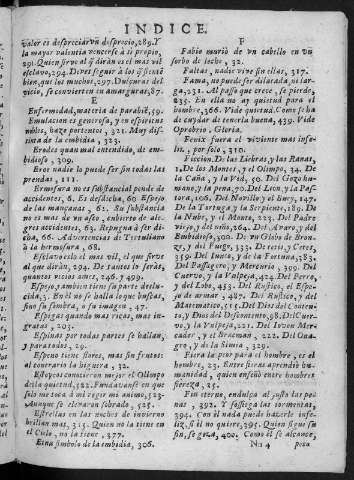 INDICE.
Valer es despreciar vn desprecio, 289. Y
la mayor valentia vencerse à si propio,
291. Quien sirve al q̃ daràn es el mas vil
esclavo, 294. Deves seguir à los q̃ siente
bien, que los muchos, 297. Dulçuras del
vicio, se convierten en amarguras, 87.
E
Enfermedad, materia de parabiẽ, 59.
Emulacion es generosa, y en espiritus
nobles, haze portentos, 321. Muy dis-
tinta de la embidia, 323.
Erodes quan mal entendido, de em-
bidioso, 309.
Eroe nadie lo puede ser sin todas las
prendas, 111.
Ermosura no es substancial pende de
accidentes, 6. Es desdicha, 60 Espejo
de las mançanas, 62. Su substancia
no es mas de vn asco, embierto de ale-
gres accidentes, 63. Repugna à ser di-
cha, 66. Advertencias de Tertuliano
à la hermosura, 68.
Esclavo es el mas vil, el que sirve
al que diràn, 294. De tantos lo seràs,
quantos vicios ames, 246. y 499.
Espejo, tambien tiene su parte desluci-
da, 3. En èl no se halla lo que buscas,
sino su sombra, ò su imagen, 47.
Espigas quando mas ricas, mas in-
gratas, 203.
Espinas por todas partes se hallan,
y para todos, 29.
Espeno tiene flores, mas sin frutos:
al contrario la higuera, 32.
Espejos conocieron mejor el Olimpo
de la quietud, 522. Fama avansè en que
solo me toca à mi regir mi animo, 523.
Aunque se elevaron sobrado, 525.
Estrellas en las noches de invierno
brillan mas, 315. Quien no la tiene en
el Cielo, no la tiene, 377.
Etna simbolo de la embidia, 306.
F
Fabio murió de vn cabello en vn
sorbo de leche, 32.
Faltas, nadie vive sin ellas, 317.
Fama, no puede ser dilatada, ni lar-
ga, 231. Al passo que crece, se pierde,
235. En ella no ay quietud para el
hombre, 366. Vide quietud. Como se ha
de cuydar de tenerla buena, 439. Vide
Oprobrio, Gloria.
Fenix fuera al viviente mas infe-
liz, por solo, 310.
Ficcion. De las Liebres, y las Ranas,
1. De los Montes, y el Olimpo, 34. De
la Caña, y la Vid, 50. Del Gozo hu-
mano, y la pena, 70. Del Leon, y la Pas-
tora, 106. Del Novillo, y el Buey, 147.
De la Tortuga, y la Serpiente, 185. De
la Nube, y el Monte, 223. Del Padre
Viejo, y del niño, 264. Del Avaro, y del
Embidioso, 300. De vn Globo de Bron-
ze, y el Fuego, 333. De tetis, y Ceres,
359. Del Iunco, y de la Fortuna, 383.
Del Passagero, y Mercurio, 399. Del
Cuervo, y la Vulpeja, 424. Del Perro,
y del Lobo, 453. Del Rustico, el Espe-
jo de armar, 487. Del Rustico, y del
Matematico, 515. Del Dios del Conten-
to, y Dios del Descontento, 98. Del Cuer-
vo, y la Vulpeja, 221. Del Ioven Mer-
cader, y el Bracman, 222. Del Ona-
gro, y la Simia, 329.
Fiera la peor para el hombre, es el
hombre, 23. Entre fieras aprendiò hu-
manidad, quien enseñó entre hombres
fiereza, 25.
Fin eterno, endulça al justo las pe-
nas, 392. Y sossiega las tormentas,
394. Con èl nada puede hazerle infe-
liz, si no lo quiere, 395. Quien sigue sin
fin, se goza, 400. Como èl se alcance,
Nn 4
poca